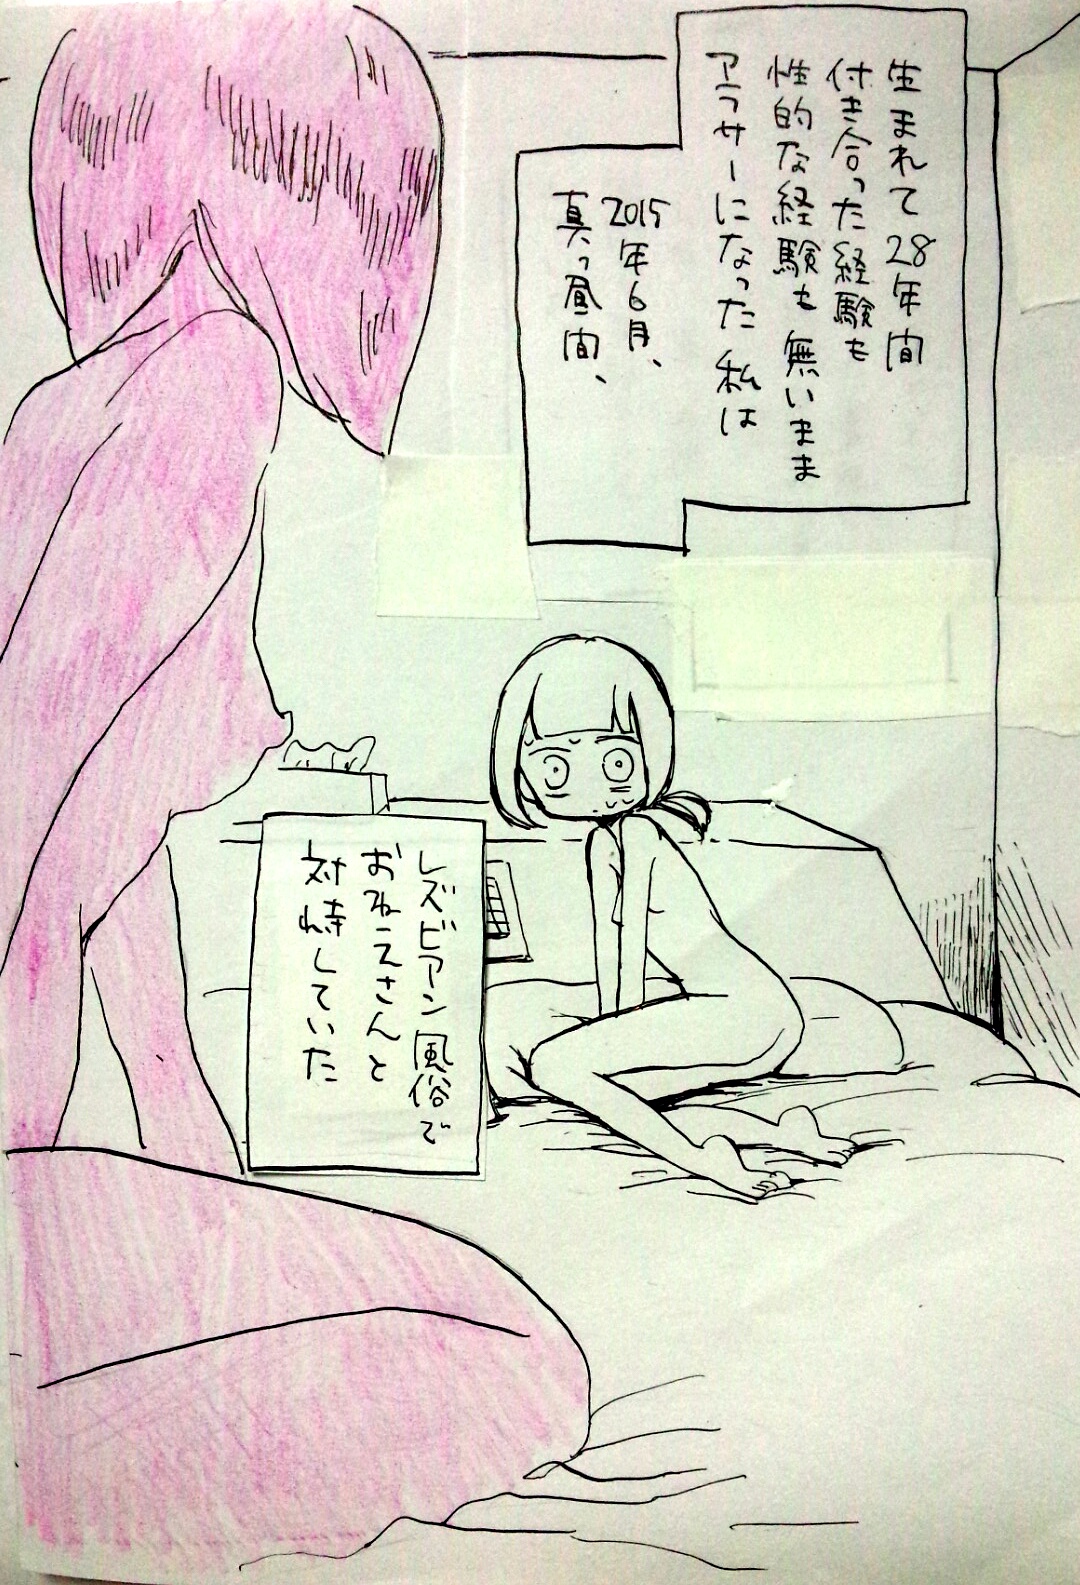 生まれて28年間
付き合った経験も
性的な経験も無いまま
アラサーになった私は
2015年6月、
真っ昼間、
レズビアン風俗で
おねえさんと
対峙していた